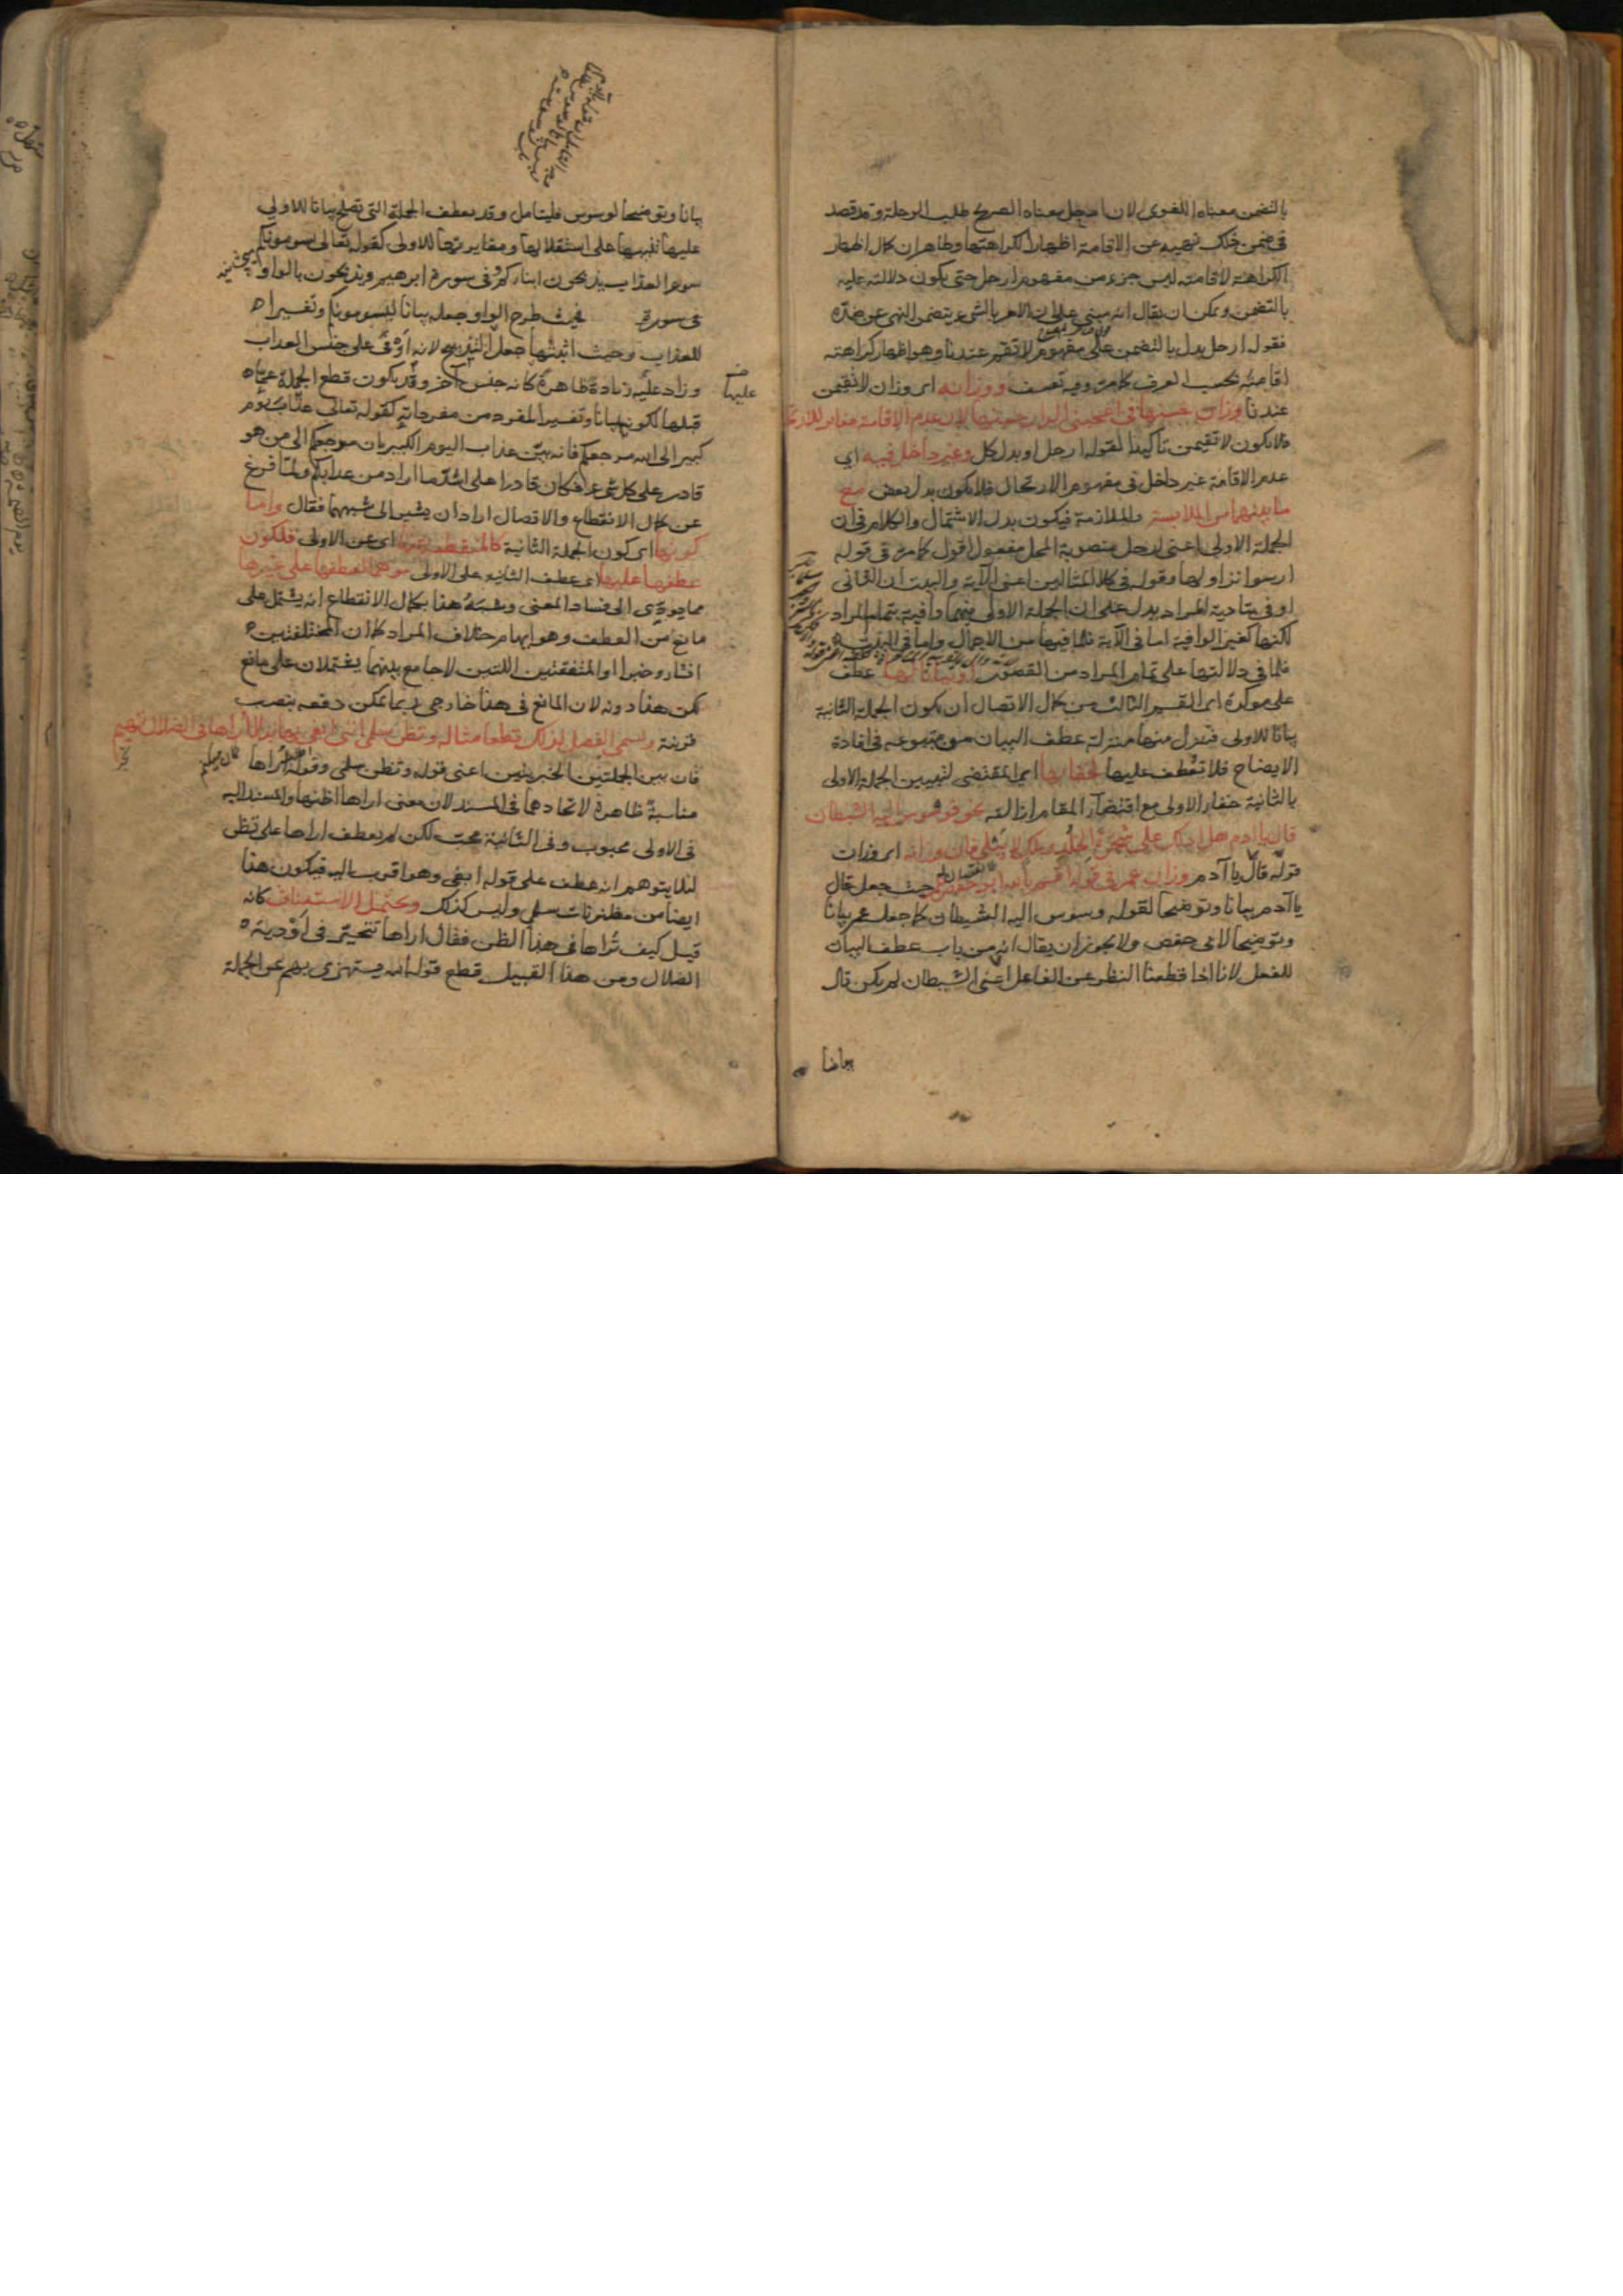 بالتضمن معناه اللغوى لان ارحل معناه الصريح طلب الرحلة وقد قصد
فى ضمن ذلك نهيه عن الاقامة اظهارا لكراهتها وظاهر ان كمال اظهار
الكراهة لاقامته ليس جزء من مفهوم ارحل حتى يكون دلالته عليه
بالتضمن ويمكن ان يقال انه مبنى على ان الامر بالشئ يتضمن النهى عن ضده
فقوله ارحل يدل بالتضمن على مفهوم لا تقم عندنا وهو اظهار كراهة
اقامته بحسب العرف كما مر وفيه تعسف ووزانه اى وزان لا تقيمن
عندنا وزان حسنها فى اعجبنى الدار حسنها لان عدم الاقامة مغاير للارتحال
فلا يكون لا تقيمن تأكيدا لقوله ارحل او بدل كل وغير داخل فيه اى
عدم الاقامة غير داخل فى مفهوم الارتحال فلا يكون بدل بعض مع
ما بينهما من الملابسة والملازمة فيكون بدل الاشتمال والكلام فى ان
الجملة الاولى اعنى ارحل منصوبة المحل مفعول اقول كما مر فى قوله
ارسوا نزاولها وقوله فى كلا المثالين اعنى الآية والبيت ان الثانى
اوفى بتادية المراد يدل على ان الجملة الاولى فيهما وافية بتمام المراد
لكنها كغير الوافية اما فى الآية فلما فيها من الاجمال واما فى البيت
فلما فى دلالتها على تمام المراد من القصور او بيانا لها عطف
على موكدة اى القسم الثالث من كمال الاتصال ان يكون الجملة الثانية
بيانا للاولى فتنزل منها منزلة عطف البيان من متبوعه فى افادة
الايضاح فلا تعطف عليها لخفائها اى المقتضى لتبيين الجملة الاولى
بالثانية خفاء الاولى مع اقتضاء المقام ازالته نحو فوسوس اليه الشيطان
قال يا ادم هل ادلك على شجرة الخلد وملك لا يبلى فان وزانه اى وزان
قوله قال يا آدم وزان عمر فى قوله اقسم بالله ابو حفص عمر حيث جعل قال
يا آدم بيانا وتوضيحا لقوله وسوس اليه الشيطان كما جعل عمر بيانا
وتوضيحا لابى حفص ولا يجوز ان يقال انه من باب عطف البيان
للفعل لانا اذا قطعنا النظر عن الفاعل اعنى الشيطان لم يكن قال
بيانا
بيانا وتوضيحا لوسوس فليتامل وقد يعطف الجملة التى تصلح بيانا للاولى
عليها تنبيها على استقلالها ومغايرتها للاولى كقوله تعالى يسومونكم
سوء العذاب يذبحون ابناءكم وفى سورة ابرهيم ويذبحون بالواو
فى سورة فحيث طرح الواو جعله بيانا ليسومونكم وتفسيرا
للعذاب وحيث اثبتها جعل التذبيح لانه اوفى على جنس العذاب
عليها
وزاد عليه زيادة ظاهرة كانه جنس آخر وقد يكون قطع الجملة عما
قبلها لكونها بيانا وتفسيرا لمفرد من مفرداته كقوله تعالى عذاب يوم
كبير الى الله مرجعكم فانه بين عذاب اليوم الكبير بان مرجعكم الى من هو
قادر على كل شئ فكان قادرا على اشد ما اراد من عذابكم ولما فرغ
عن كمال الانقطاع والاتصال اراد ان يشير الى شبههما فقال واما
كونها اى كون الجملة الثانية كالمنقطعة عنها اى عن الاولى فلكون
عطفها عليها اى عطف الثانية على الاولى موهما لعطفها على غيرها
مما يودى الى فساد المعنى وشبه هذا بكمال الانقطاع انه يشتمل على
مانع من العطف وهو ايهام خلاف المراد كما ان المختلفتين
انشاء وخبرا او المتفقتين اللتين لا جامع بينهما يشتملان على مانع
لكن هذا دونه لان المانع فى هذا خارجى ربما يمكن دفعه بنصب
قرينة ويسمى الفصل لذلك قطعا مثاله وتظن سلمى اننى ابغى بها بدلا اراها فى الضلال تهيم
فان بين الجملتين الخبريتين اعنى قوله وتظن سلمى وقوله اراها
مناسبة ظاهرة لاتحادهما فى المسند لان معنى اراها اظنها والمسند اليه
فى الاولى محبوب وفى الثانية محب لكن لم يعطف اراها على تظن
لئلا يتوهم انه عطف على قوله ابغى وهو اقرب اليه فيكون هذا
ايضا من مظنونات سلمى وليس كذلك ويحتمل الاستيناف كانه
قيل كيف تراها فى هذا الظن فقال اراها تتحير فى اودية
الضلال ومن هذا القبيل قطع قوله الله يستهزئ بهم عن الجملة